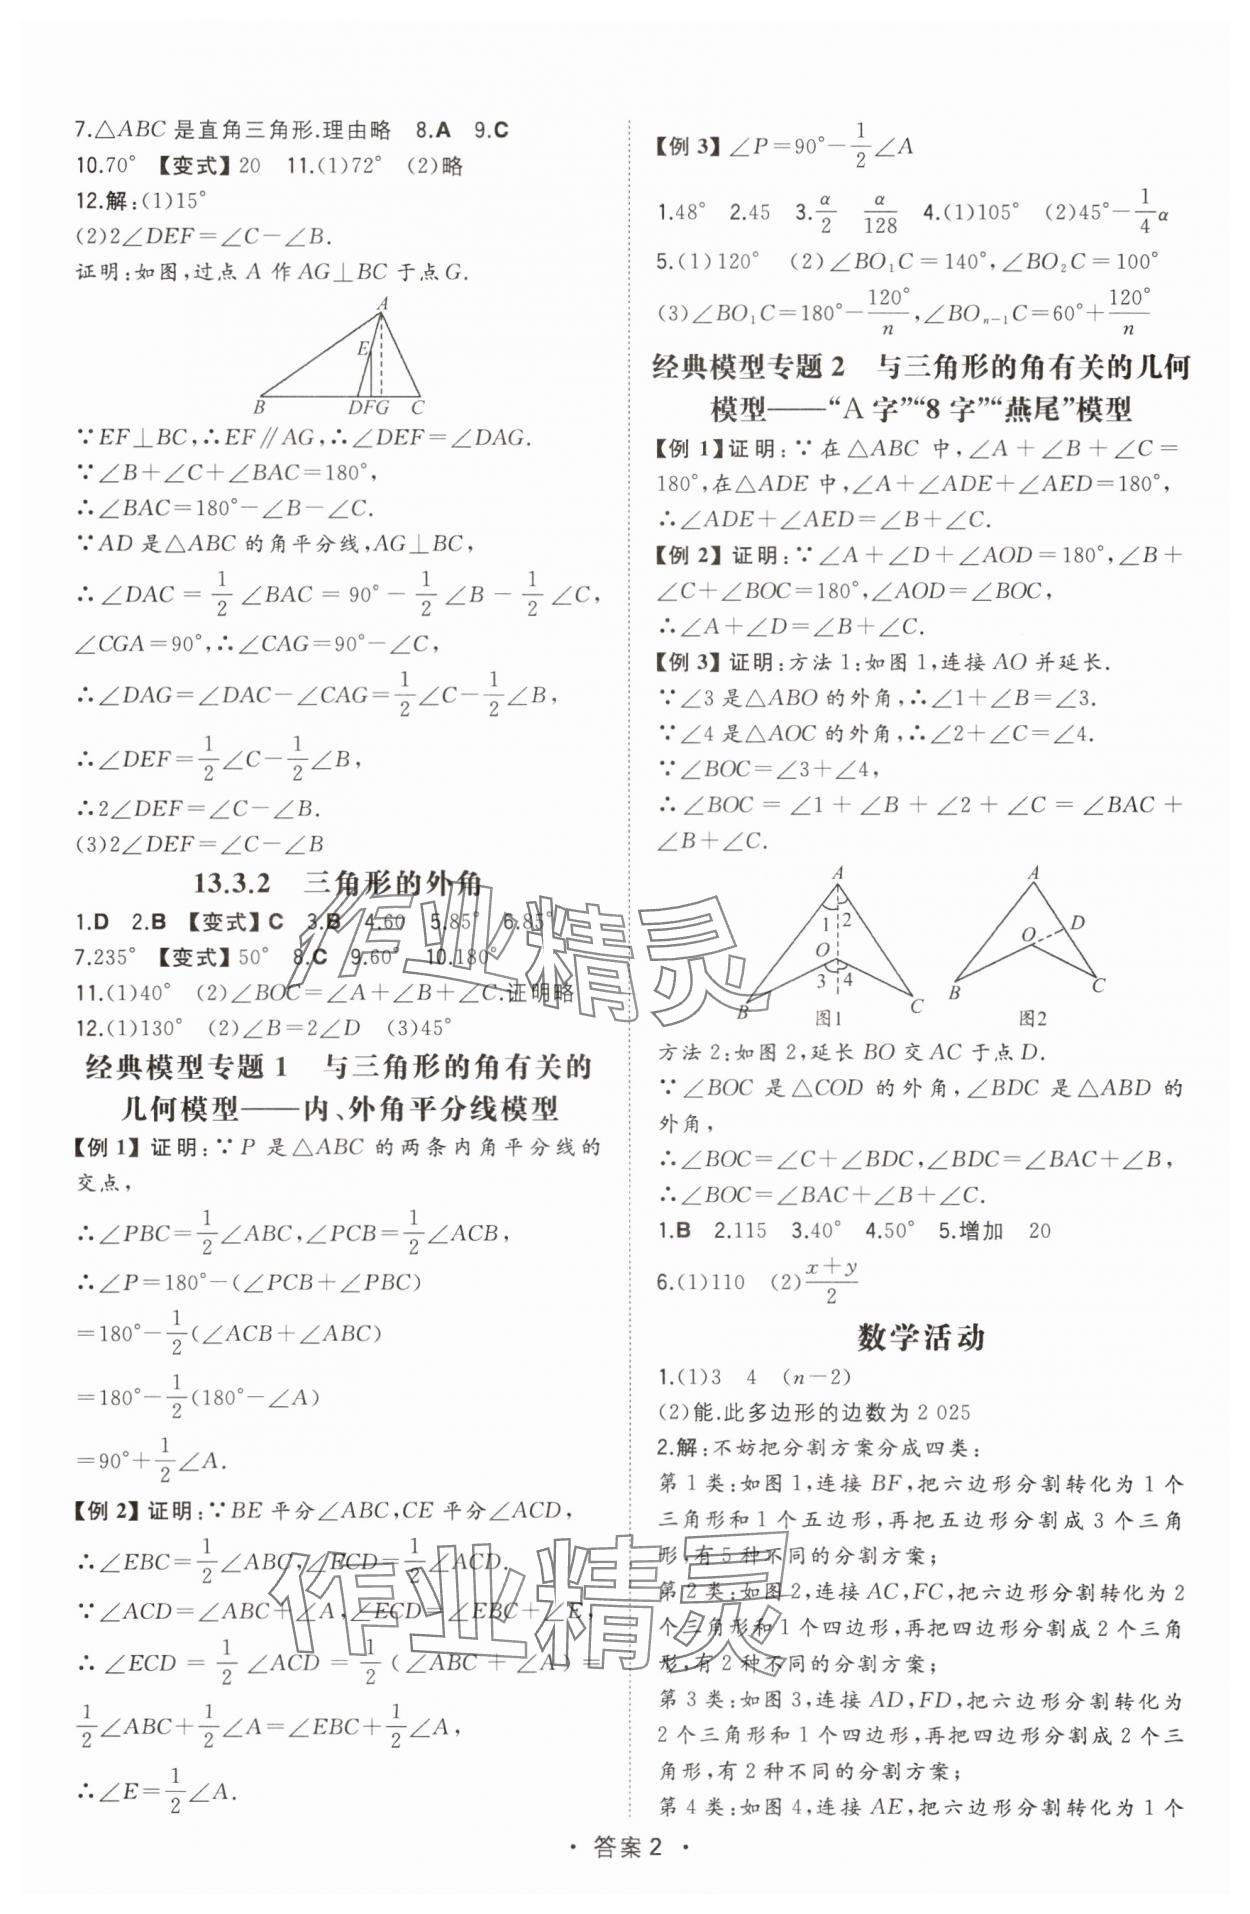 7.△ABC 是直角三角形.理由略　8.A　9.C
10.70°【变式】20　11.(1)72°　(2)略
12.解:(1)15°
(2)2∠DEF=∠C-∠B.
证明:如图,过点 A 作 AG⊥BC 于点G.
A
E
B　DFG　C
∵EF⊥BC,∴EF∥AG,∴∠DEF=∠DAG.
∵∠B+∠C+∠BAC=180°,
∴∠BAC=180°-∠B-∠C.
∵AD 是△ABC 的角平分线,AG⊥BC,
∴∠DAC=1/2∠BAC=90°-1/2∠B-1/2∠C,
∠CGA=90°,∴∠CAG=90°-∠C,
∴∠DAG=∠DAC-∠CAG=1/2∠C-1/2∠B,
∴∠DEF=1/2∠C-1/2∠B,
∴2∠DEF=∠C-∠B.
(3)2∠DEF=∠C-∠B
13.3.2　三角形的外角
1.D　2.B【变式】C　3.B　4.60　5.85°　6.85°
7.235°【变式】50°　8.C　9.60°　10.180°
11.(1)40°　(2)∠BOC=∠A+∠B+∠C.证明略
12.(1)130°　(2)∠B=2∠D　(3)45°
经典模型专题 1　与三角形的角有关的
几何模型——内、外角平分线模型
【例 1】证明:∵P 是△ABC 的两条内角平分线的
交点,
∴∠PBC=1/2∠ABC,∠PCB=1/2∠ACB,
∴∠P=180°-(∠PCB+∠PBC)
=180°-1/2(∠ACB+∠ABC)
=180°-1/2(180°-∠A)
=90°+1/2∠A.
【例 2】证明:∵BE 平分∠ABC,CE 平分∠ACD,
∴∠EBC=1/2∠ABC,∠ECD=1/2∠ACD.
∵∠ACD=∠ABC+∠A,∠ECD=∠EBC+∠E,
∴∠ECD=1/2∠ACD=1/2(∠ABC+∠A)=
1/2∠ABC+1/2∠A=∠EBC+1/2∠A,
∴∠E=1/2∠A.
【例 3】∠P=90°-1/2∠A
1.48°　2.45　3.α/2　α/128　4.(1)105°　(2)45°-1/4α
5.(1)120°　(2)∠BO₁C=140°,∠BO₂C=100°
(3)∠BO₁C=180°-120°/n,∠BOₙ₋₁C=60°+120°/n
经典模型专题 2　与三角形的角有关的几何
模型——“A 字”“8 字”“燕尾”模型
【例 1】证明:∵在△ABC 中,∠A+∠B+∠C=
180°,在△ADE 中,∠A+∠ADE+∠AED=180°,
∴∠ADE+∠AED=∠B+∠C.
【例 2】证明:∵∠A+∠D+∠AOD=180°,∠B+
∠C+∠BOC=180°,∠AOD=∠BOC,
∴∠A+∠D=∠B+∠C.
【例 3】证明:方法 1:如图 1,连接 AO 并延长.
∵∠3 是△ABO 的外角,∴∠1+∠B=∠3.
∵∠4 是△AOC 的外角,∴∠2+∠C=∠4.
∵∠BOC=∠3+∠4,
∴∠BOC=∠1+∠B+∠2+∠C=∠BAC+
∠B+∠C.
A　A
1　2　D
O　O
3　4
B　C　B　C
图1　图2
方法 2:如图 2,延长 BO 交 AC 于点 D.
∵∠BOC 是△COD 的外角,∠BDC 是△ABD 的
外角,
∴∠BOC=∠C+∠BDC,∠BDC=∠BAC+∠B,
∴∠BOC=∠BAC+∠B+∠C.
1.B　2.115　3.40°　4.50°　5.增加　20
6.(1)110　(2)(x+y)/2
数学活动
1.(1)3　4　(n-2)
(2)能.此多边形的边数为 2 025
2.解:不妨把分割方案分成四类:
第 1 类:如图 1,连接 BF,把六边形分割转化为 1 个
三角形和 1 个五边形,再把五边形分割成 3 个三角
形,有 5 种不同的分割方案;
第 2 类:如图 2,连接 AC,FC,把六边形分割转化为 2
个三角形和 1 个四边形,再把四边形分割成 2 个三角
形,有 2 种不同的分割方案;
第 3 类:如图 3,连接 AD,FD,把六边形分割转化为
2 个三角形和 1 个四边形,再把四边形分割成 2 个三
角形,有 2 种不同的分割方案;
第 4 类:如图 4,连接 AE,把六边形分割转化为 1 个
· 答案 2 ·
作业精灵
作业精灵